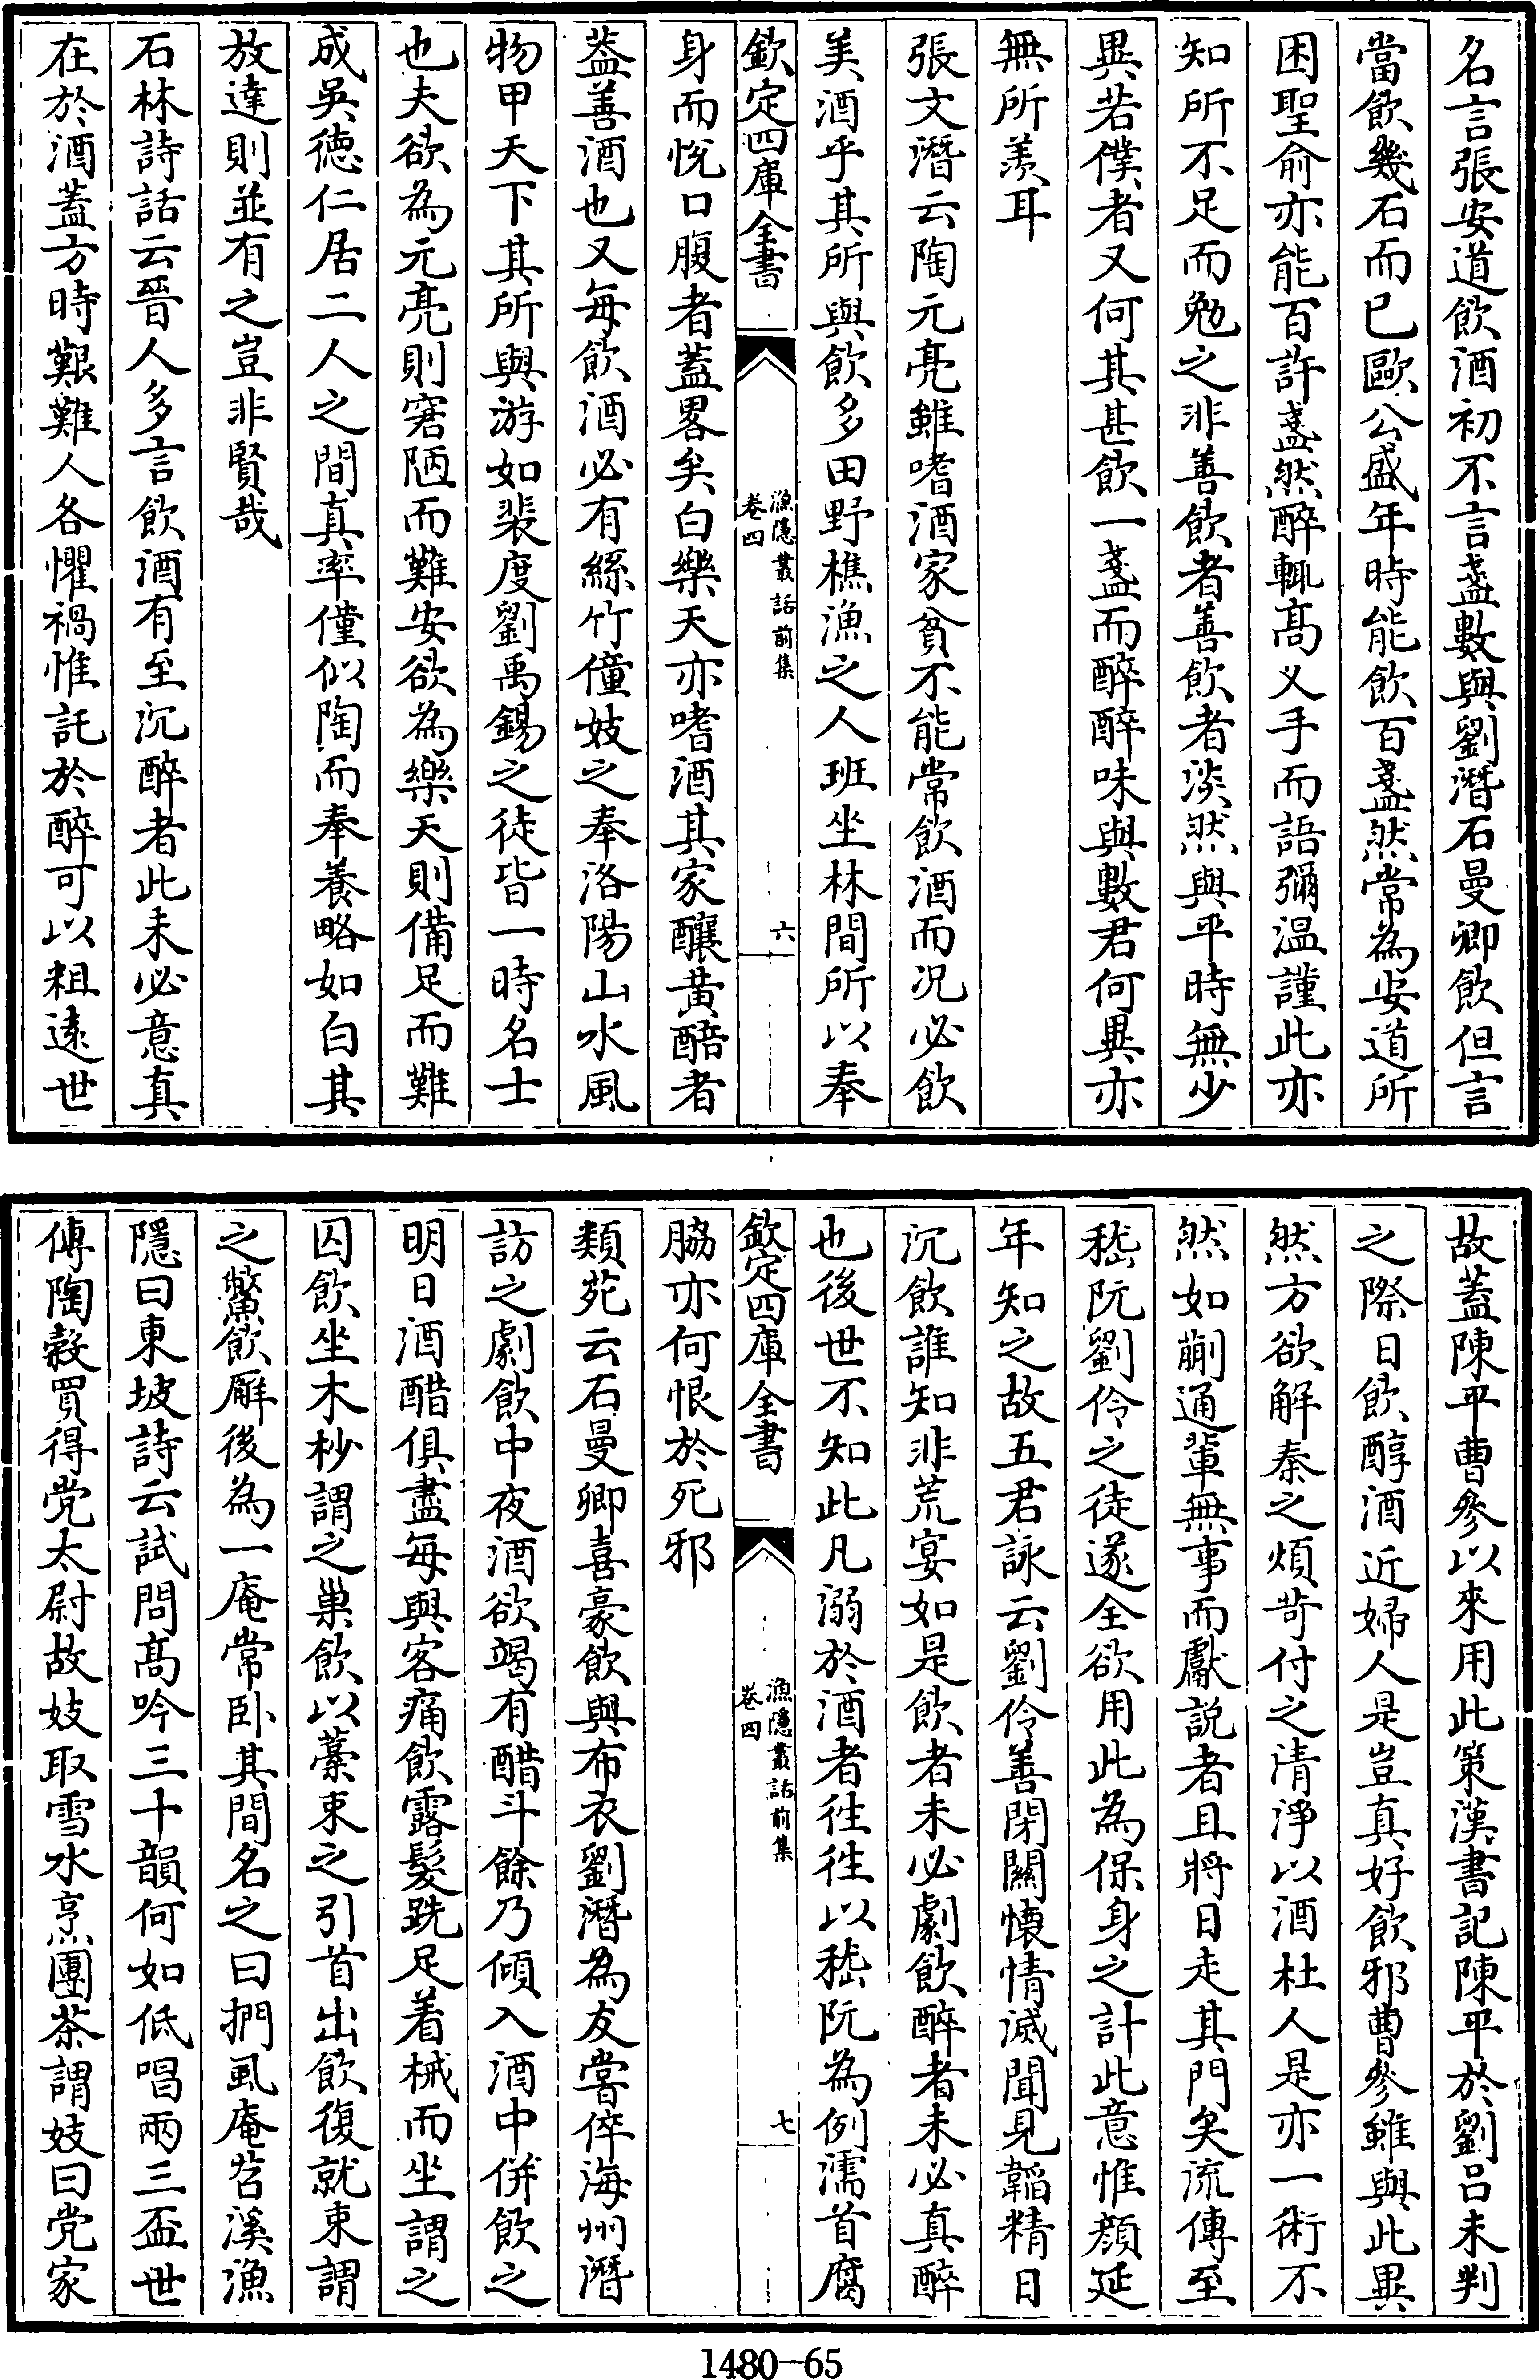 名言張安道飲酒初不言盞數與劉潛石曼卿飲但言
當飲幾石而已歐公盛年時能飲百盞然常為安道所
困聖俞亦能百許盞然醉輒髙义手而語彌温謹此亦
知所不足而勉之非善飲者善飲者淡然與平時無少
異若僕者又何其甚飲一盞而醉醉味與數君何異亦
無所羡耳
張文潛云陶元亮雖嗜酒家貧不能常飲酒而况必飲
美酒乎其所與飲多田野樵漁之人班坐林間所以奉
欽定四庫全書
漁隱叢話前集
卷四
六
身而悅口腹者蓋畧矣白樂天亦嗜酒其家釀黄醅者
葢善酒也又每飲酒必有絲竹僮妓之奉洛陽山水風
物甲天下其所與游如裴度劉禹錫之徒皆一時名士
也夫欲為元亮則窘陋而難安欲為樂天則備足而難
成吳德仁居二人之間真率僅似陶而奉養略如白其
放達則並有之豈非賢哉
石林詩話云晉人多言飲酒有至沉醉者此未必意真
在於酒蓋方時艱難人各懼禍惟託於醉可以粗遠世
故蓋陳平曹參以來用此策漢書記陳平於劉吕未判
之際日飲醇酒近婦人是豈真好飲邪曹參雖與此異
然方欲解秦之煩苛付之清淨以酒杜人是亦一術不
然如蒯通輩無事而獻説者且將日走其門矣流傳至
嵇阮劉伶之徒遂全欲用此為保身之計此意惟顔延
年知之故五君詠云劉伶善閉關懐情滅聞見韜精日
沉飲誰知非荒宴如是飲者未必劇飲醉者未必真醉
也後世不知此凡溺於酒者徃徃以嵇阮為例濡首腐
欽定四庫全書
漁隱叢話前集
卷四
七
脇亦何恨於死邪
類苑云石曼卿喜豪飲與布衣劉潛為友嘗倅海州潛
訪之劇飲中夜酒欲竭有醋斗餘乃傾入酒中併飲之
明日酒醋俱盡每與客痛飲露髮跣足着械而坐謂之
囚飲坐木杪謂之巢飲以藁束之引首出飲復就束謂
之鱉飲廨後為一庵常卧其間名之曰捫虱庵苕溪漁
隱曰東坡詩云試問髙吟三十韻何如低唱兩三盃世
傳陶穀買得党太尉故妓取雪水烹團茶謂妓曰党家
1480-65